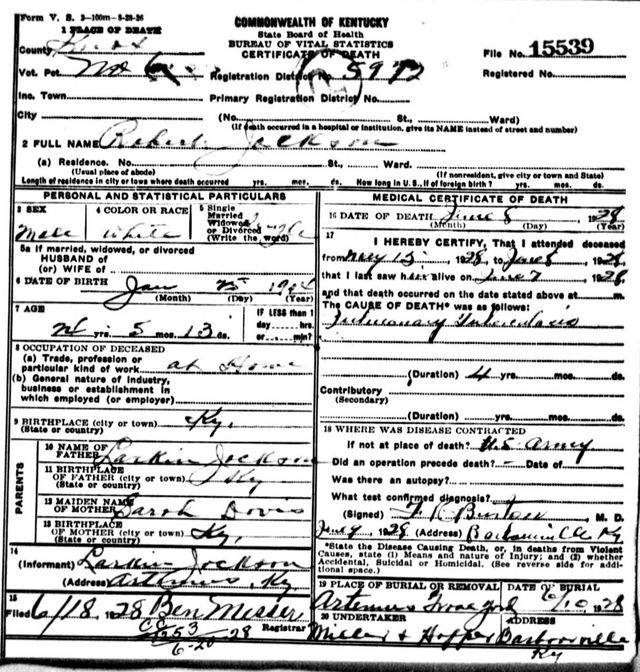 Form V. S. 2-100m-8-28-26
COMMONWEALTH OF KENTUCKY
State Board of Health
BUREAU OF VITAL STATISTICS
CERTIFICATE OF DEATH
1 PLACE OF DEATH
County Knox
File No. 15539
Vot. Pct. No 6
Registration District No. 5972
Registered No.
Inc. Town
Primary Registration District No.
City (No. St., Ward)
(If death occurred in a hospital or institution, give its NAME instead of street and number)
2 FULL NAME Robert Jackson
(a) Residence. No. St., Ward.
(Usual place of abode) (If nonresident, give city or town and State)
Length of residence in city or town where death occurred yrs. mos. ds. How long in U. S., if of foreign birth? yrs. mos. ds.
PERSONAL AND STATISTICAL PARTICULARS
3 SEX
Male
4 COLOR OR RACE
White
5 Single
Married
Widowed
or Divorced
(Write the word)
5a If married, widowed, or divorced
HUSBAND of
(or) WIFE of
6 DATE OF BIRTH Jan 25 1904
(Month) (Day) (Year)
7 AGE
24 yrs. 5 mos. 13 ds.
IF LESS than 1
day hrs.
or min.?
8 OCCUPATION OF DECEASED
(a) Trade, profession or
particular kind of work at Home
(b) General nature of industry,
business or establishment in
which employed (or employer)
9 BIRTHPLACE (city or town) Ky.
(State or country)
PARENTS
10 NAME OF
FATHER Larkin Jackson
11 BIRTHPLACE
OF FATHER (city or town) Ky
(State or country)
12 MAIDEN NAME
OF MOTHER Sarah Davis
13 BIRTHPLACE
OF MOTHER (city or town) Ky.
(State or country)
14
(Informant) Larkin Jackson
(Address) Artemus, Ky
15
Filed 6/18, 1928 Ben Messer
Registrar
6-20
MEDICAL CERTIFICATE OF DEATH
16 DATE OF DEATH June 8 1928
(Month) (Day) (Year)
17
I HEREBY CERTIFY, That I attended deceased
from May 12, 1928, to June 8, 1928,
that I last saw him alive on June 7, 1928,
and that death occurred on the date stated above at m.
The CAUSE OF DEATH* was as follows:
Pulmonary Tuberculosis
(Duration) 4 yrs. mos. ds.
Contributory
(Secondary)
(Duration) yrs. mos. ds.
18 WHERE WAS DISEASE CONTRACTED
If not at place of death? U.S. Army
Did an operation precede death? - Date of
Was there an autopsy?
What test confirmed diagnosis?
(Signed) M. D.
June 9, 1928 (Address) Barbourville Ky
*State the Disease Causing Death, or, in deaths from Violent
Causes, state (1) Means and nature of Injury; and (2) whether
Accidental, Suicidal or Homicidal. (See reverse side for addi-
tional space.)
19 PLACE OF BURIAL OR REMOVAL
Artemus
DATE OF BURIAL
6/10 1928
20 UNDERTAKER
Miller & Hopper Barbourville
Ky